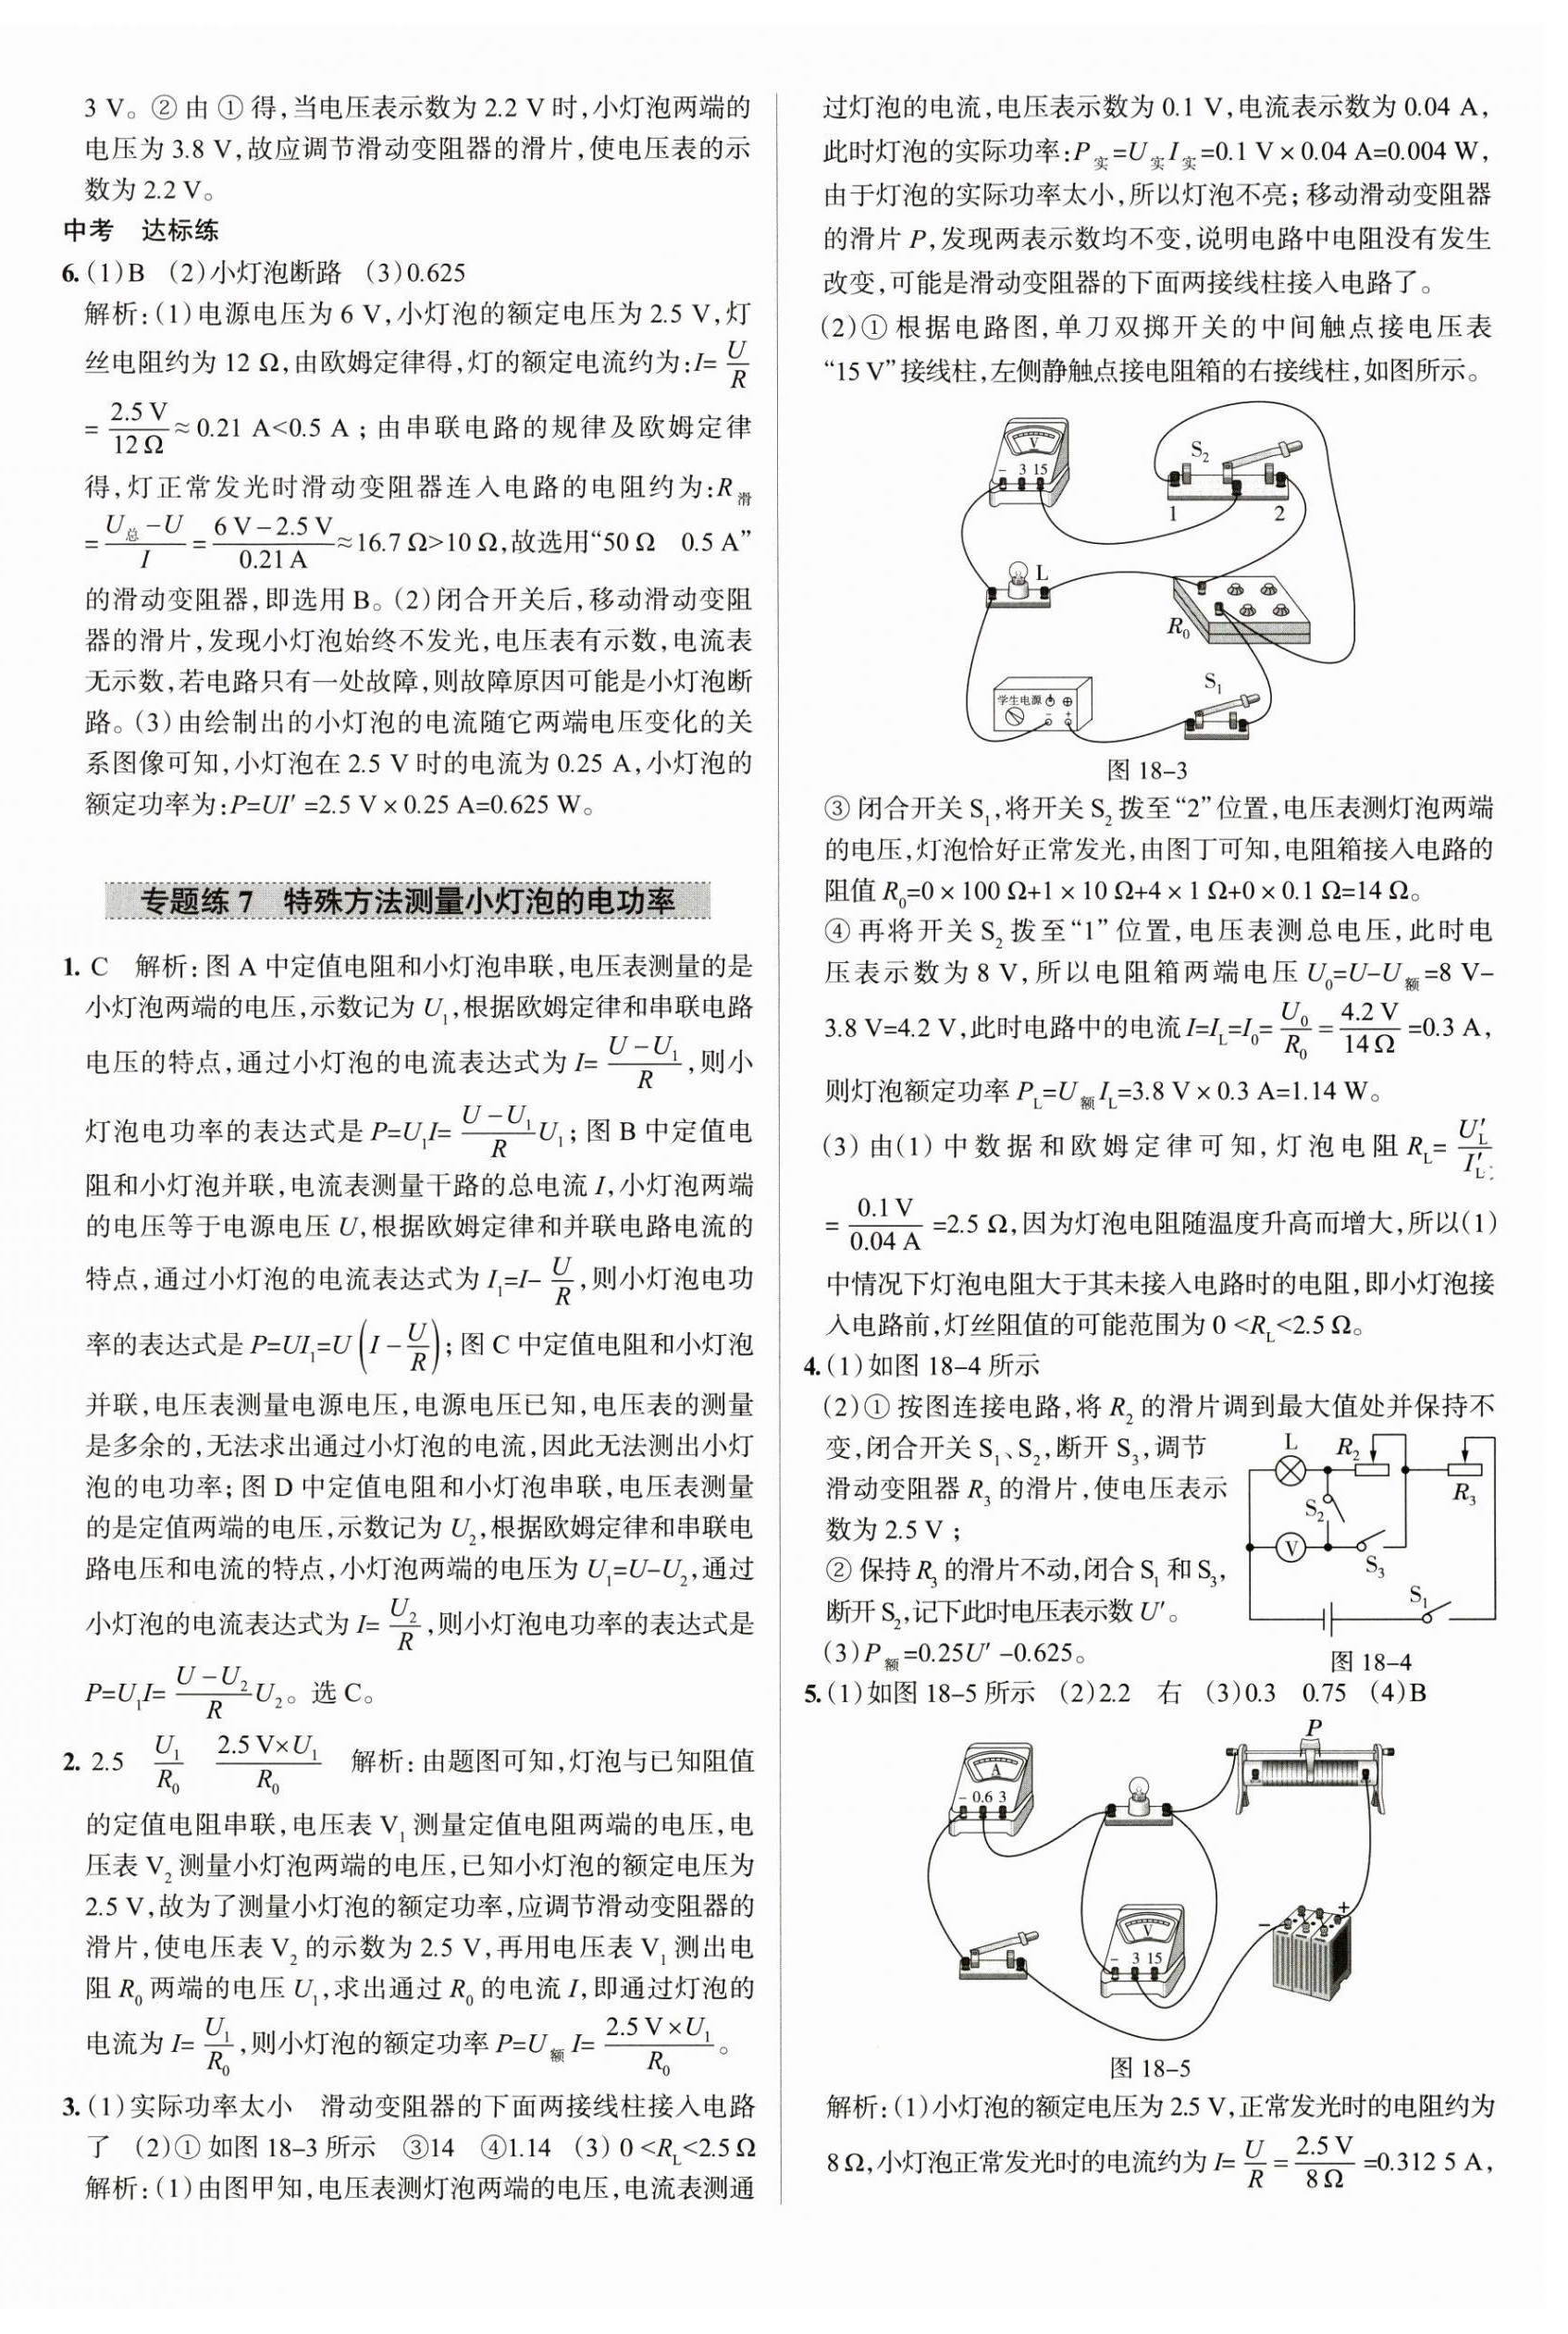 3 V。② 由 ① 得,当电压表示数为 2.2 V 时,小灯泡两端的
电压为 3.8 V,故应调节滑动变阻器的滑片,使电压表的示
数为 2.2 V。
中考 达标练
6. (1)B (2)小灯泡断路 (3)0.625
解析:(1)电源电压为 6 V,小灯泡的额定电压为 2.5 V,灯
丝电阻约为 12 Ω,由欧姆定律得,灯的额定电流约为:I= U/R
= 2.5 V/12 Ω ≈ 0.21 A<0.5 A ; 由串联电路的规律及欧姆定律
得,灯正常发光时滑动变阻器连入电路的电阻约为:R滑
= (U总-U)/I = (6 V-2.5 V)/0.21 A ≈16.7 Ω>10 Ω,故选用“50 Ω 0.5 A”
的滑动变阻器,即选用 B。(2)闭合开关后,移动滑动变阻
器的滑片,发现小灯泡始终不发光,电压表有示数,电流表
无示数,若电路只有一处故障,则故障原因可能是小灯泡断
路。(3)由绘制出的小灯泡的电流随它两端电压变化的关
系图像可知,小灯泡在 2.5 V 时的电流为 0.25 A,小灯泡的
额定功率为:P=UI′ =2.5 V × 0.25 A=0.625 W。
专题练 7 特殊方法测量小灯泡的电功率
1. C 解析:图 A 中定值电阻和小灯泡串联,电压表测量的是
小灯泡两端的电压,示数记为 U₁,根据欧姆定律和串联电路
电压的特点,通过小灯泡的电流表达式为 I= (U-U₁)/R ,则小
灯泡电功率的表达式是 P=U₁I= (U-U₁)/R U₁; 图 B 中定值电
阻和小灯泡并联,电流表测量干路的总电流 I,小灯泡两端
的电压等于电源电压 U,根据欧姆定律和并联电路电流的
特点,通过小灯泡的电流表达式为 I₁=I- U/R ,则小灯泡电功
率的表达式是 P=UI₁=U (I - U/R); 图 C 中定值电阻和小灯泡
并联,电压表测量电源电压,电源电压已知,电压表的测量
是多余的,无法求出通过小灯泡的电流,因此无法测出小灯
泡的电功率; 图 D 中定值电阻和小灯泡串联,电压表测量
的是定值两端的电压,示数记为 U₂,根据欧姆定律和串联电
路电压和电流的特点,小灯泡两端的电压为 U₁=U-U₂,通过
小灯泡的电流表达式为 I= U₂/R ,则小灯泡电功率的表达式是
P=U₁I= (U-U₂)/R U₂。选 C。
2. 2.5 U₁/R₀ (2.5 V×U₁)/R₀ 解析:由题图可知,灯泡与已知阻值
的定值电阻串联,电压表 V₁ 测量定值电阻两端的电压,电
压表 V₂ 测量小灯泡两端的电压,已知小灯泡的额定电压为
2.5 V,故为了测量小灯泡的额定功率,应调节滑动变阻器的
滑片,使电压表 V₂ 的示数为 2.5 V,再用电压表 V₁ 测出电
阻 R₀ 两端的电压 U₁,求出通过 R₀ 的电流 I,即通过灯泡的
电流为 I= U₁/R₀ ,则小灯泡的额定功率 P=U额 I= (2.5 V×U₁)/R₀ 。
3. (1)实际功率太小 滑动变阻器的下面两接线柱接入电路
了 (2)① 如图 18-3 所示 ③14 ④1.14 (3) 0 <R_L<2.5 Ω
解析:(1)由图甲知,电压表测灯泡两端的电压,电流表测通
过灯泡的电流,电压表示数为 0.1 V,电流表示数为 0.04 A,
此时灯泡的实际功率:P实=U实I实=0.1 V × 0.04 A=0.004 W,
由于灯泡的实际功率太小,所以灯泡不亮; 移动滑动变阻器
的滑片 P,发现两表示数均不变,说明电路中电阻没有发生
改变,可能是滑动变阻器的下面两接线柱接入电路了。
(2)① 根据电路图,单刀双掷开关的中间触点接电压表
“15 V”接线柱,左侧静触点接电阻箱的右接线柱,如图所示。
V
- 3 15
S₂
1 2
L
R₀
学生电源
- +
S₁
图 18-3
③ 闭合开关 S₁,将开关 S₂ 拨至“2”位置,电压表测灯泡两端
的电压,灯泡恰好正常发光,由图丁可知,电阻箱接入电路的
阻值 R₀=0 × 100 Ω+1 × 10 Ω+4 × 1 Ω+0 × 0.1 Ω=14 Ω。
④ 再将开关 S₂ 拨至“1”位置,电压表测总电压,此时电
压表示数为 8 V,所以电阻箱两端电压 U₀=U-U额=8 V-
3.8 V=4.2 V,此时电路中的电流 I=I_L=I₀= U₀/R₀ = 4.2 V/14 Ω =0.3 A,
则灯泡额定功率 P_L=U额I_L=3.8 V × 0.3 A=1.14 W。
(3) 由(1) 中数据和欧姆定律可知,灯泡电阻 R_L= U′_L/I′_L
= 0.1 V/0.04 A =2.5 Ω,因为灯泡电阻随温度升高而增大,所以(1)
中情况下灯泡电阻大于其未接入电路时的电阻,即小灯泡接
入电路前,灯丝阻值的可能范围为 0 <R_L<2.5 Ω。
4. (1)如图 18-4 所示
(2)① 按图连接电路,将 R₂ 的滑片调到最大值处并保持不
变,闭合开关 S₁、S₂,断开 S₃,调节
滑动变阻器 R₃ 的滑片,使电压表示
数为 2.5 V ;
② 保持 R₃ 的滑片不动,闭合 S₁ 和 S₃,
断开 S₂,记下此时电压表示数 U′。
(3)P额=0.25U′ -0.625。
L R₂
R₃
S₂
V
S₃
S₁
图 18-4
5. (1)如图 18-5 所示 (2)2.2 右 (3)0.3 0.75 (4)B
P
A
- 0.6 3
V
- 3 15
- +
图 18-5
解析:(1)小灯泡的额定电压为 2.5 V,正常发光时的电阻约为
8 Ω,小灯泡正常发光时的电流约为 I= U/R = 2.5 V/8 Ω =0.312 5 A,